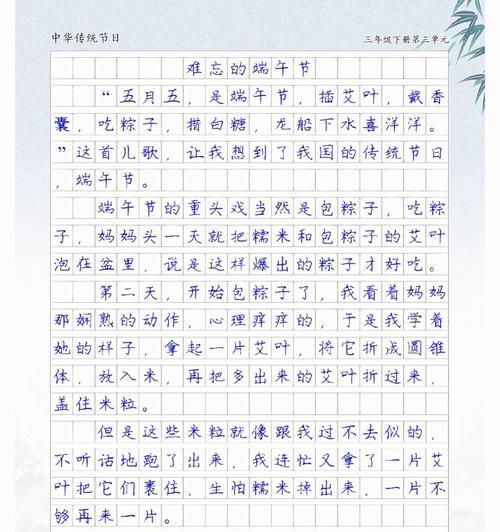 中华传统节日
三年级下册第三单元
难忘的端午节
“五月五，是端午节，插艾叶，戴香
囊，吃粽子，撸白糖，龙船下水喜洋洋。
”这首儿歌，让我想到了我国的传统节日
，端午节。
端午节的重头戏当然是包粽子，吃粽
子，妈妈头一天就把糯米和包粽子的艾叶
泡在盆里，说是这样爆出的粽子才好吃。
第二天，开始包粽子了，我看着妈妈
那娴熟的动作，心理痒痒的，于是我学着
她的样子，拿起一片艾叶，将它折成圆锥
体，放入米，再把多出来的艾叶折过来，
盖住米粒。
但是这些米粒就像跟我过不去似的，
不听话地跑了出来，我连忙又拿了一片艾
叶把它们裹住，生怕糯米掉出来，一片不
够再来一片。